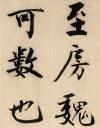 至房魏
可數也